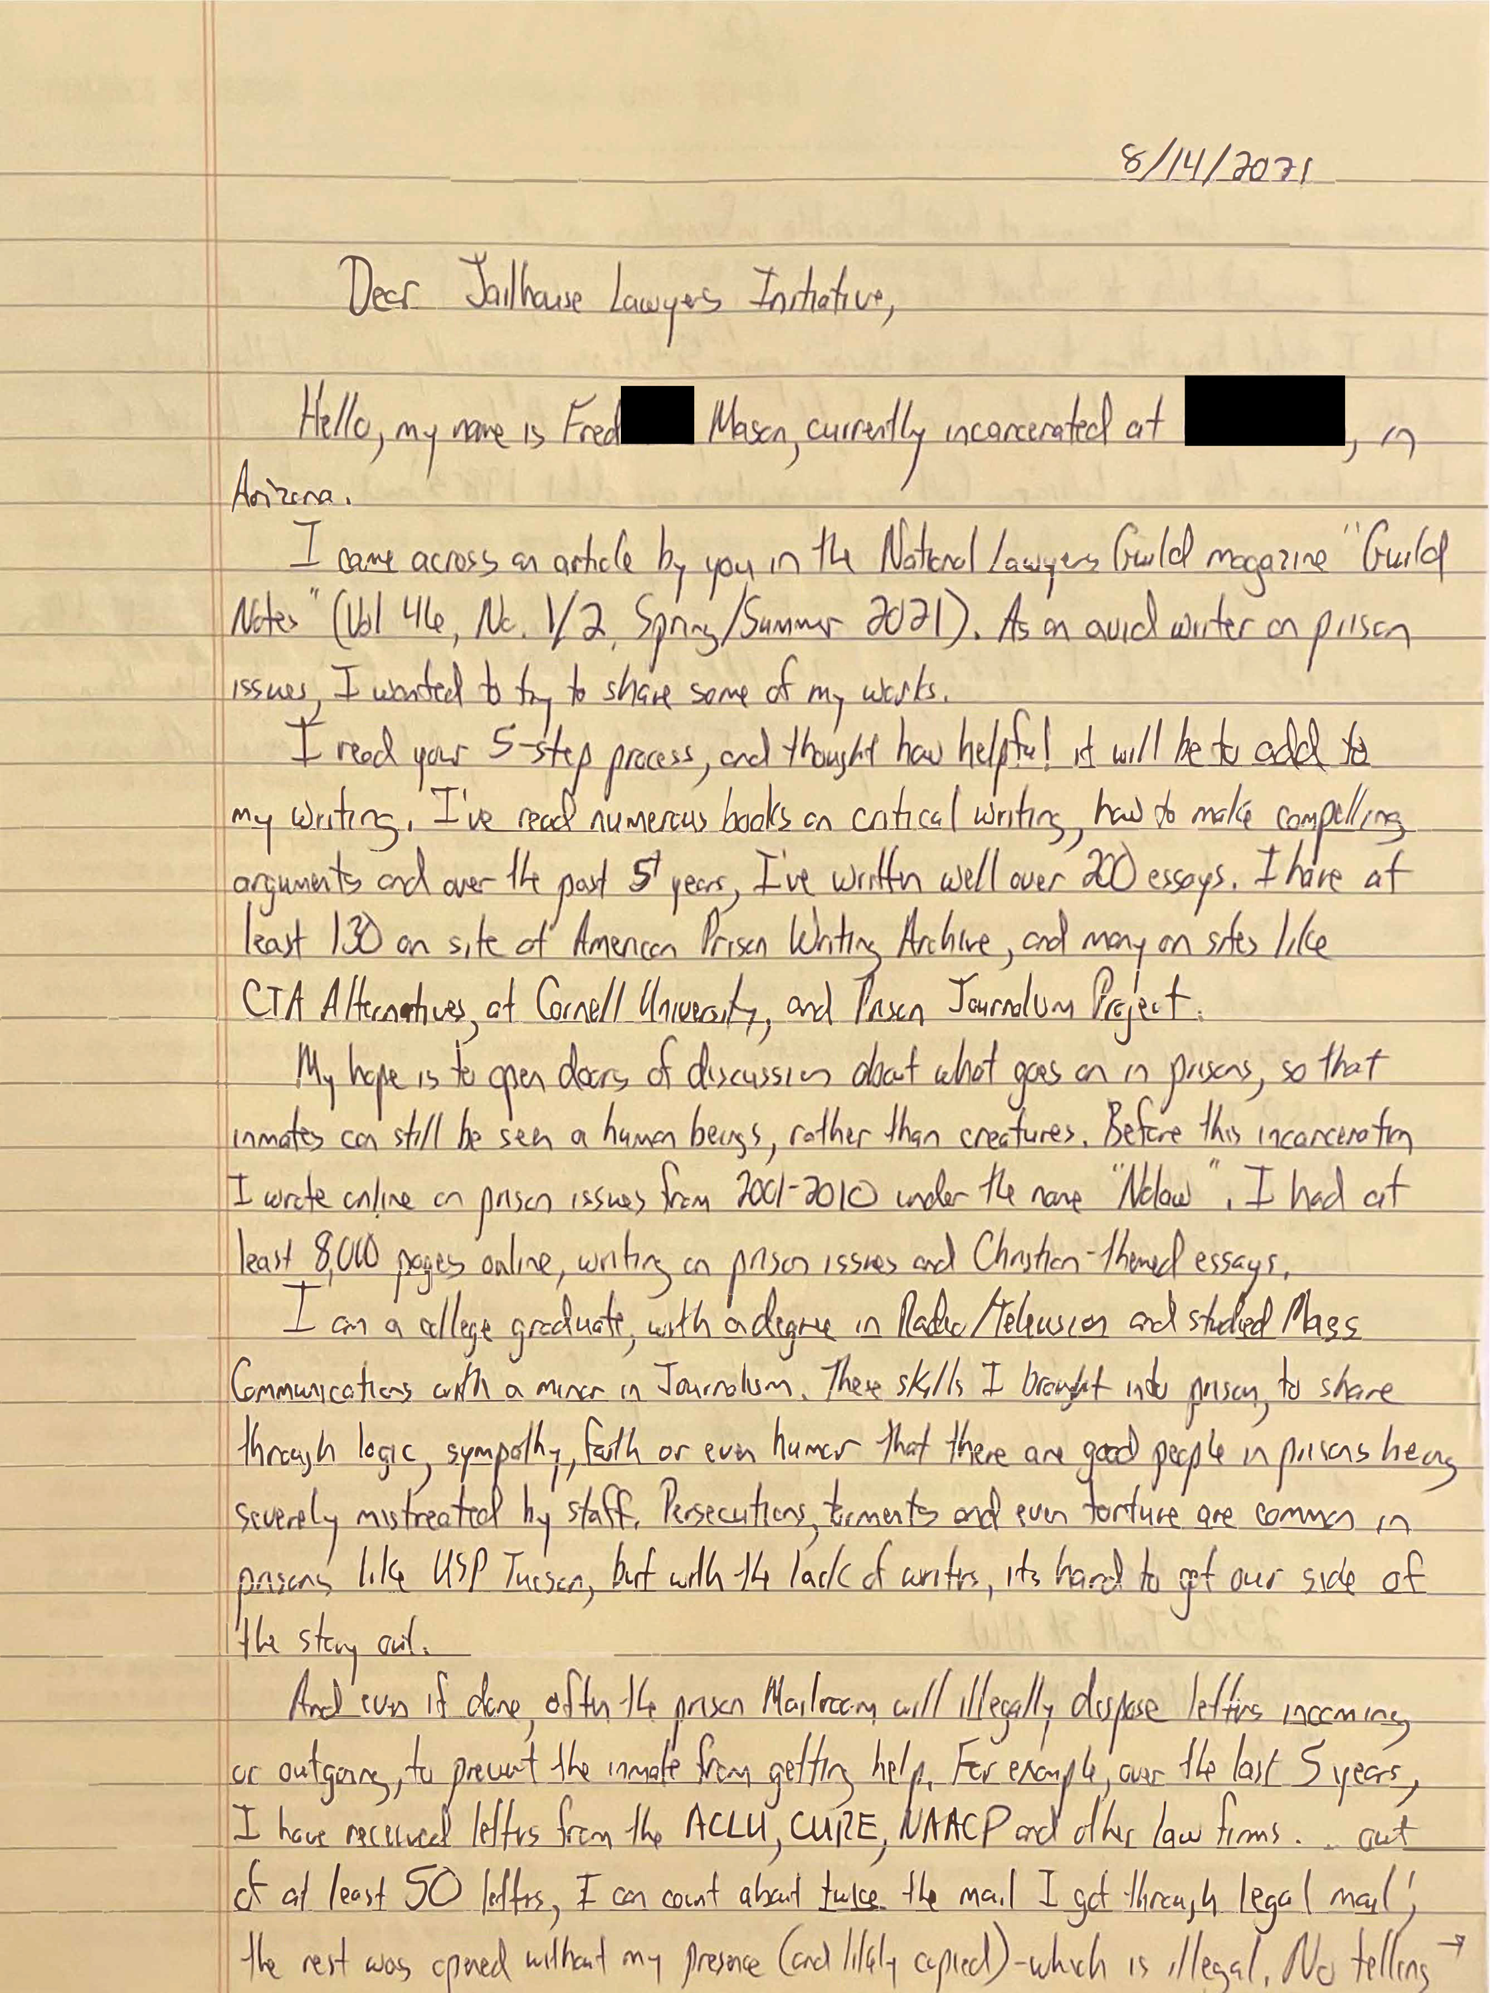 8/14/2021
Dear Jailhouse Lawyers Initiative,
Hello, my name is Fred Mason, currently incarcerated at , in
Arizona.
I came across an article by you in the National Lawyers Guild magazine "Guild
Notes" (Vol 46, No. 1/2, Spring/Summer 2021). As an avid writer on prison
issues, I wanted to try to share some of my works.
I read your 5-step process, and thought how helpful it will be to add to
my writing. I've read numerous books on critical writing, how to make compelling
arguments and over the past 5 years, I've written well over 200 essays. I have at
least 130 on site of American Prison Writing Archive, and many on sites like
CTA Alternatives, at Cornell University, and Prison Journalism Project.
My hope is to open doors of discussion about what goes on in prisons, so that
inmates can still be seen a human beings, rather than creatures. Before this incarceration
I wrote online on prison issues from 2001-2010 under the name "Nolaw". I had at
least 8,000 pages online, writing on prison issues and Christian-themed essays.
I am a college graduate, with a degree in Radio/Television and studied Mass
Communications with a minor in Journalism. These skills I brought into prison, to share
through logic, sympathy, faith or even humor that there are good people in prisons being
severely mistreated by staff. Persecutions, torments and even torture are common in
prisons like USP Tucson, but with the lack of writers, its hard to get our side of
the story out.
And even if done, often the prison Mailroom will illegally dispose letters incoming
or outgoing, to prevent the inmate from getting help. For example, over the last 5 years,
I have received letters from the ACLU, CURE, NAACP and other law firms... out
of at least 50 letters, I can count about twice the mail I got through legal mail;
the rest was opened without my presence (and likely copied)-which is illegal. No telling →